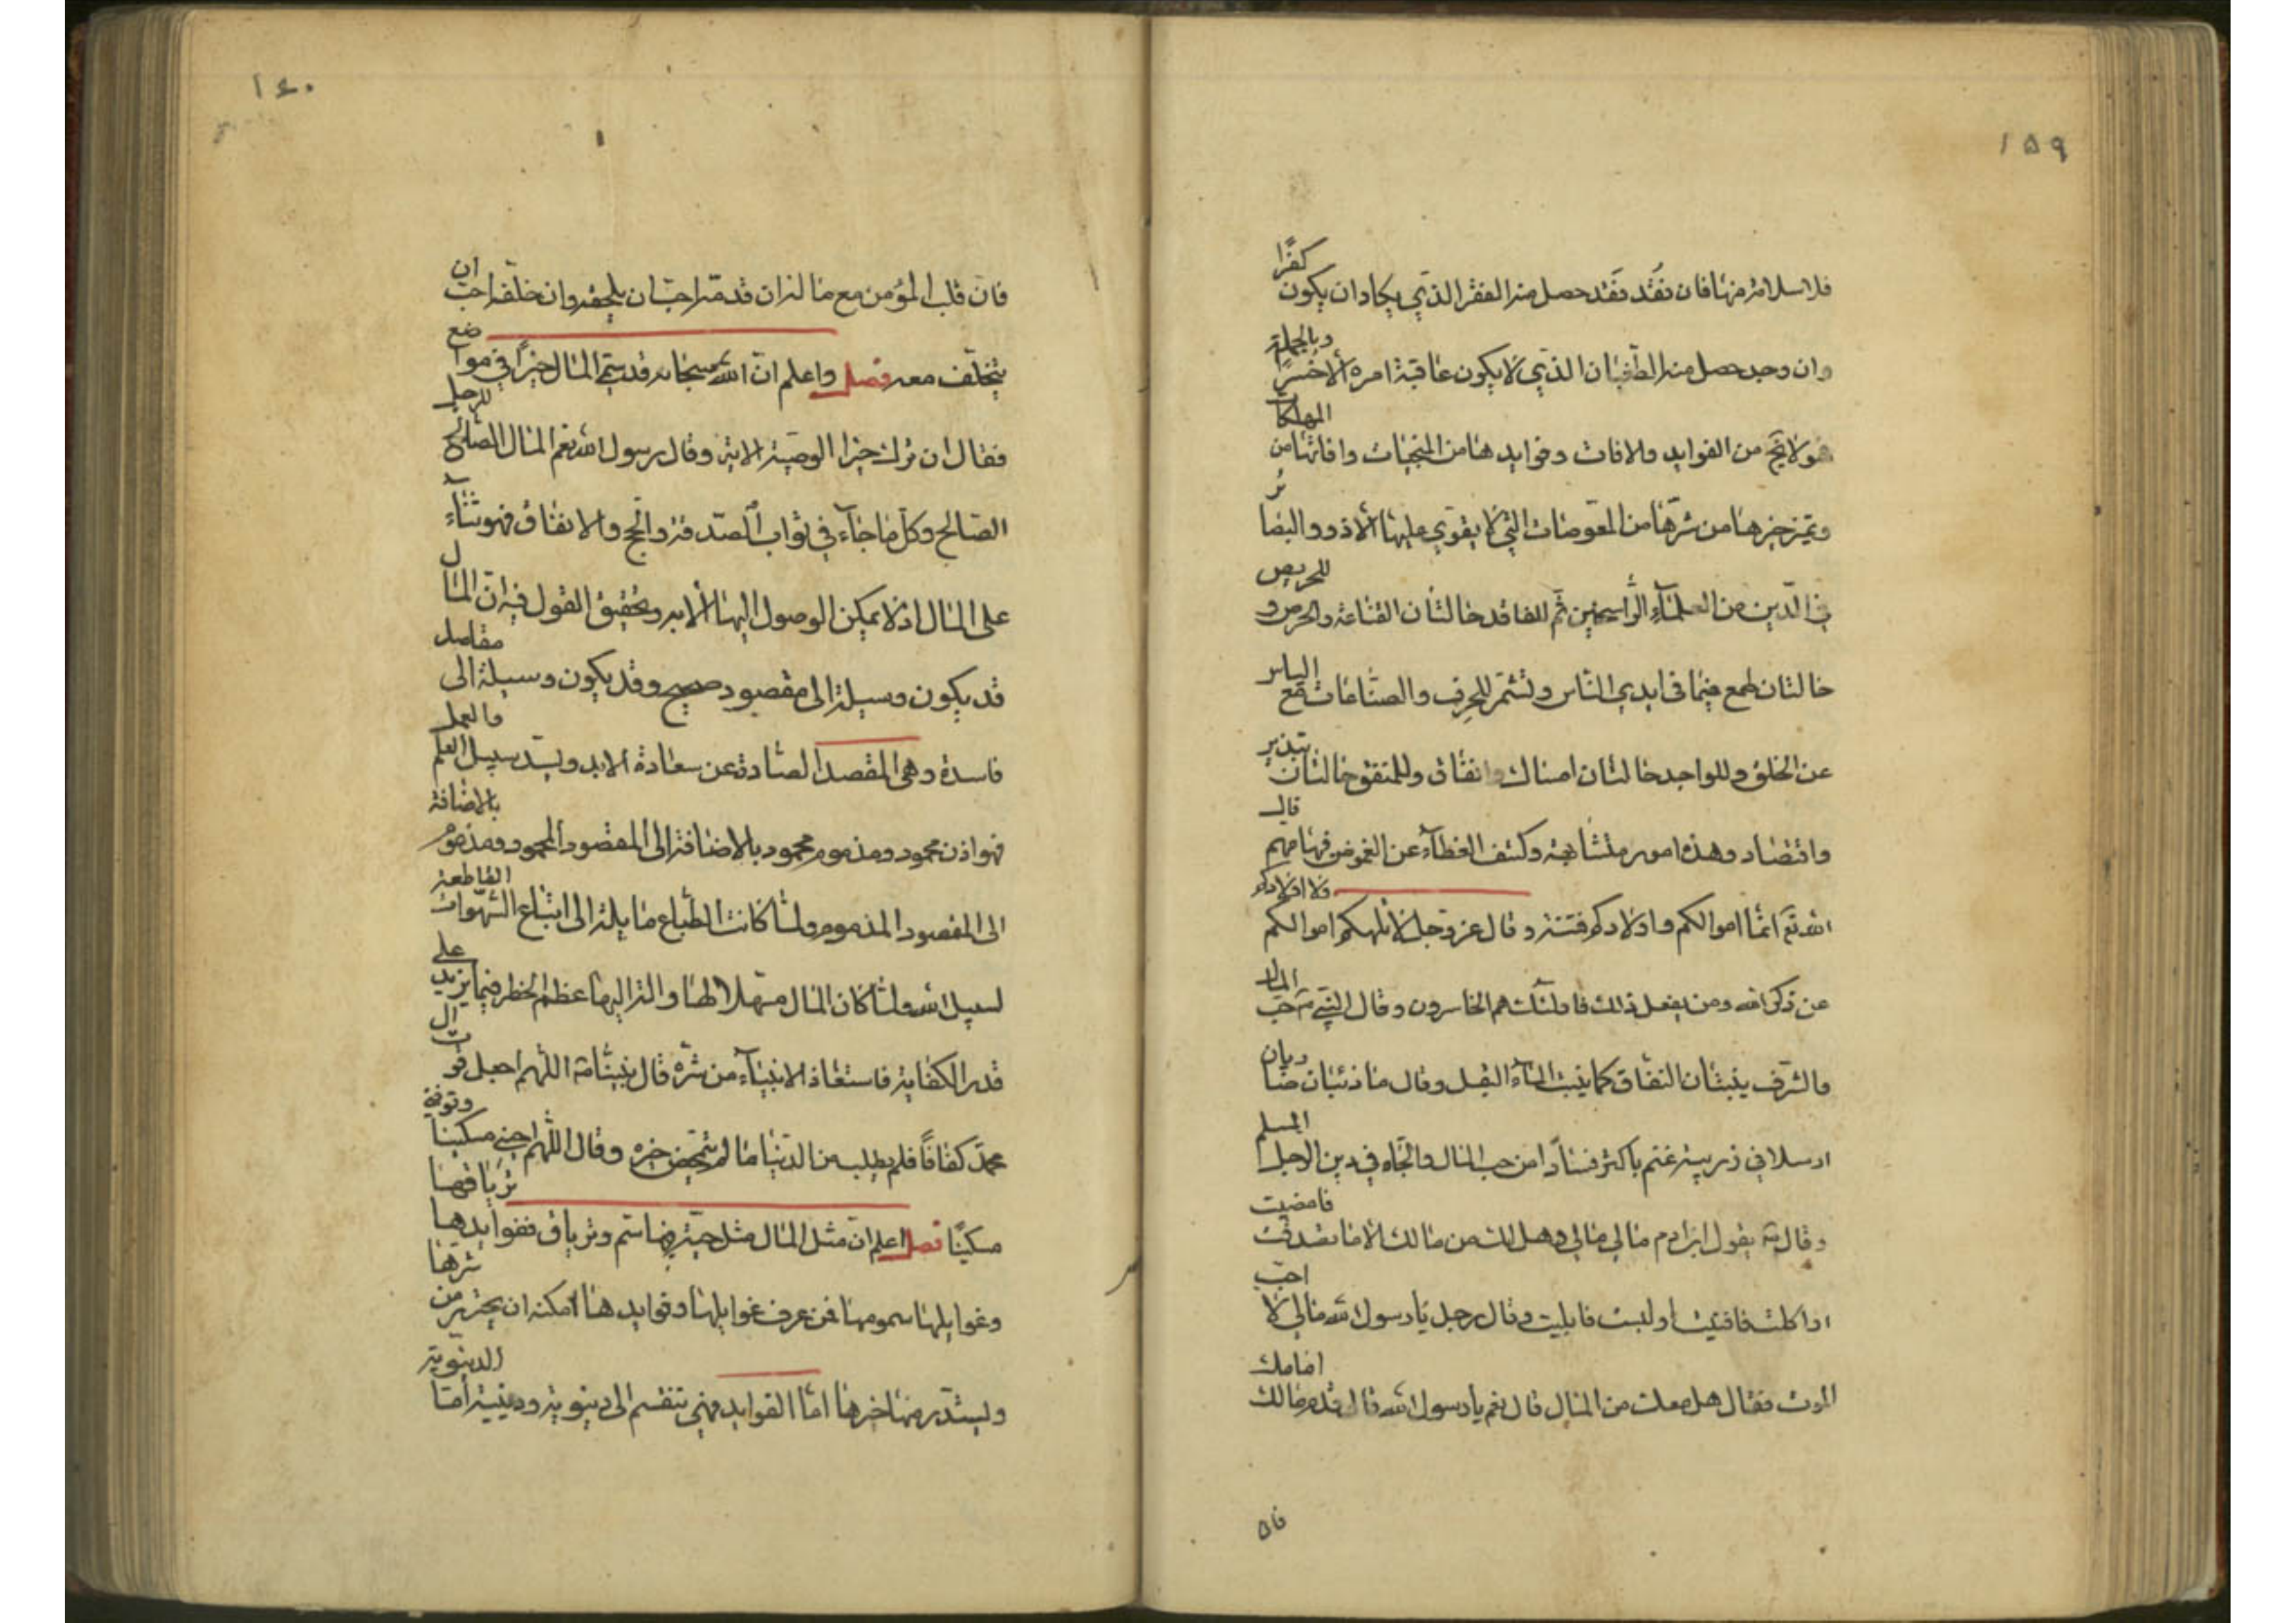 ١٥٩
فلا سلامة منها فان فقد فقد حصل منه الفقر الذي يكاد ان يكون كفرًا
وان وجد حصل منه الطغيان الذي لا يكون عاقبة امره الا خسرًا وبالجملة
هو لا يخ من الفوايد والافات وفوايدهنا من المنجيات وافاتها من المهلكات
وتميز خيرهنا من شرّهنا من المعوصات التي لا يقوي عليها الا ذوو البصائر
في الدّين من العلمآء الرّاسخين ثم للفاقد حالتان القناعة والحرص وللحريص
حالتان طمع فيما في ايدي النّاس وتشمّر للحرف والصناعات مع الياس
عن الخلق وللواجد حالتان امساك وانفاق وللمنفق حالتان تبذير
واقتصاد وهذه امور متشابهة وكشف الغطآء عن الغموض فيها مهم قال
الله تع انما اموالكم واولادكم فتنة وقال عز وجل لا تلهكم اموالكم ولا اولادكم
عن ذكر الله ومن يفعل ذلك فاولئك هم الخاسرون وقال النّبي ص حبّ المال
والشرف ينبتان النفاق كما ينبت المآء البقل وقال ما ذئبان ضاريان
ارسلا في زريبة غنم باكثر فسادًا من حب المال والجاه في دين الرجل المسلم
وقال ص يقول ابن ادم مالي مالي وهل لك من مالك الا ما تصدقت فامضيت
او اكلت فافنيت او لبست فابليت وقال رجل يا رسول الله مالي لا احبّ
الموت فقال هل معك من المال قال نعم يا رسول الله قال قدم مالك امامك
فان
١٤٠
فانّ قلب المؤمن مع ماله ان قدّمه احبّ ان يلحقه وان خلّفه احبّ ان
يتخلّف معه فصل واعلم انّ الله سبحانه قد سمّى المال خيرًا في مواضع
فقال ان ترك خيرا الوصية الاية وقال رسول الله نعم المال الصّالح للرجل
الصّالح وكلّ ما جآء في ثواب الصّدقة والحج والانفاق فهو ثنآء
على المال اذ لا يمكن الوصول اليها الا به وتحقيق القول فيه انّ المال
قد يكون وسيلة الى مقصود صحيح وقد يكون وسيلة الى مقاصد
فاسدة وهي المقصد الصّادة عن سعادة الابد وتسدّ سبيل العلم والعمل
فهو اذن محمود ومذموم محمود بالاضافة الى المقصود المحمود ومذموم بالاضافة
الى المقصود المذموم ولما كانت الطّباع مايلة الى اتباع الشّهوات القاطعة
لسبيل الله ولما كان المال مسهلا لها والة اليها عظم الخطر فيما يزيد على
قدر الكفاية فاستعاذ الانبيآء من شرّه قال نبيّنا ص اللّهم اجعل قوت ال
محمّد كفافًا فلم يطلب من الدّنيا ما لم يتمحض خيره وقال اللّهم احيني مسكينا وتوفني
مسكينًا فصل اعلم انّ مثل المال مثل حيّة فيها سم وترياق ففوايدها ترياقها
وغوايلها سمومها فمن عرف غوايلها وفوايدهنا امكنه ان يحترز من شرها
ويستدر منها خيرها امّا الفوايد فهي تنقسم الى دنيوية ودينية امّا الدنيوية